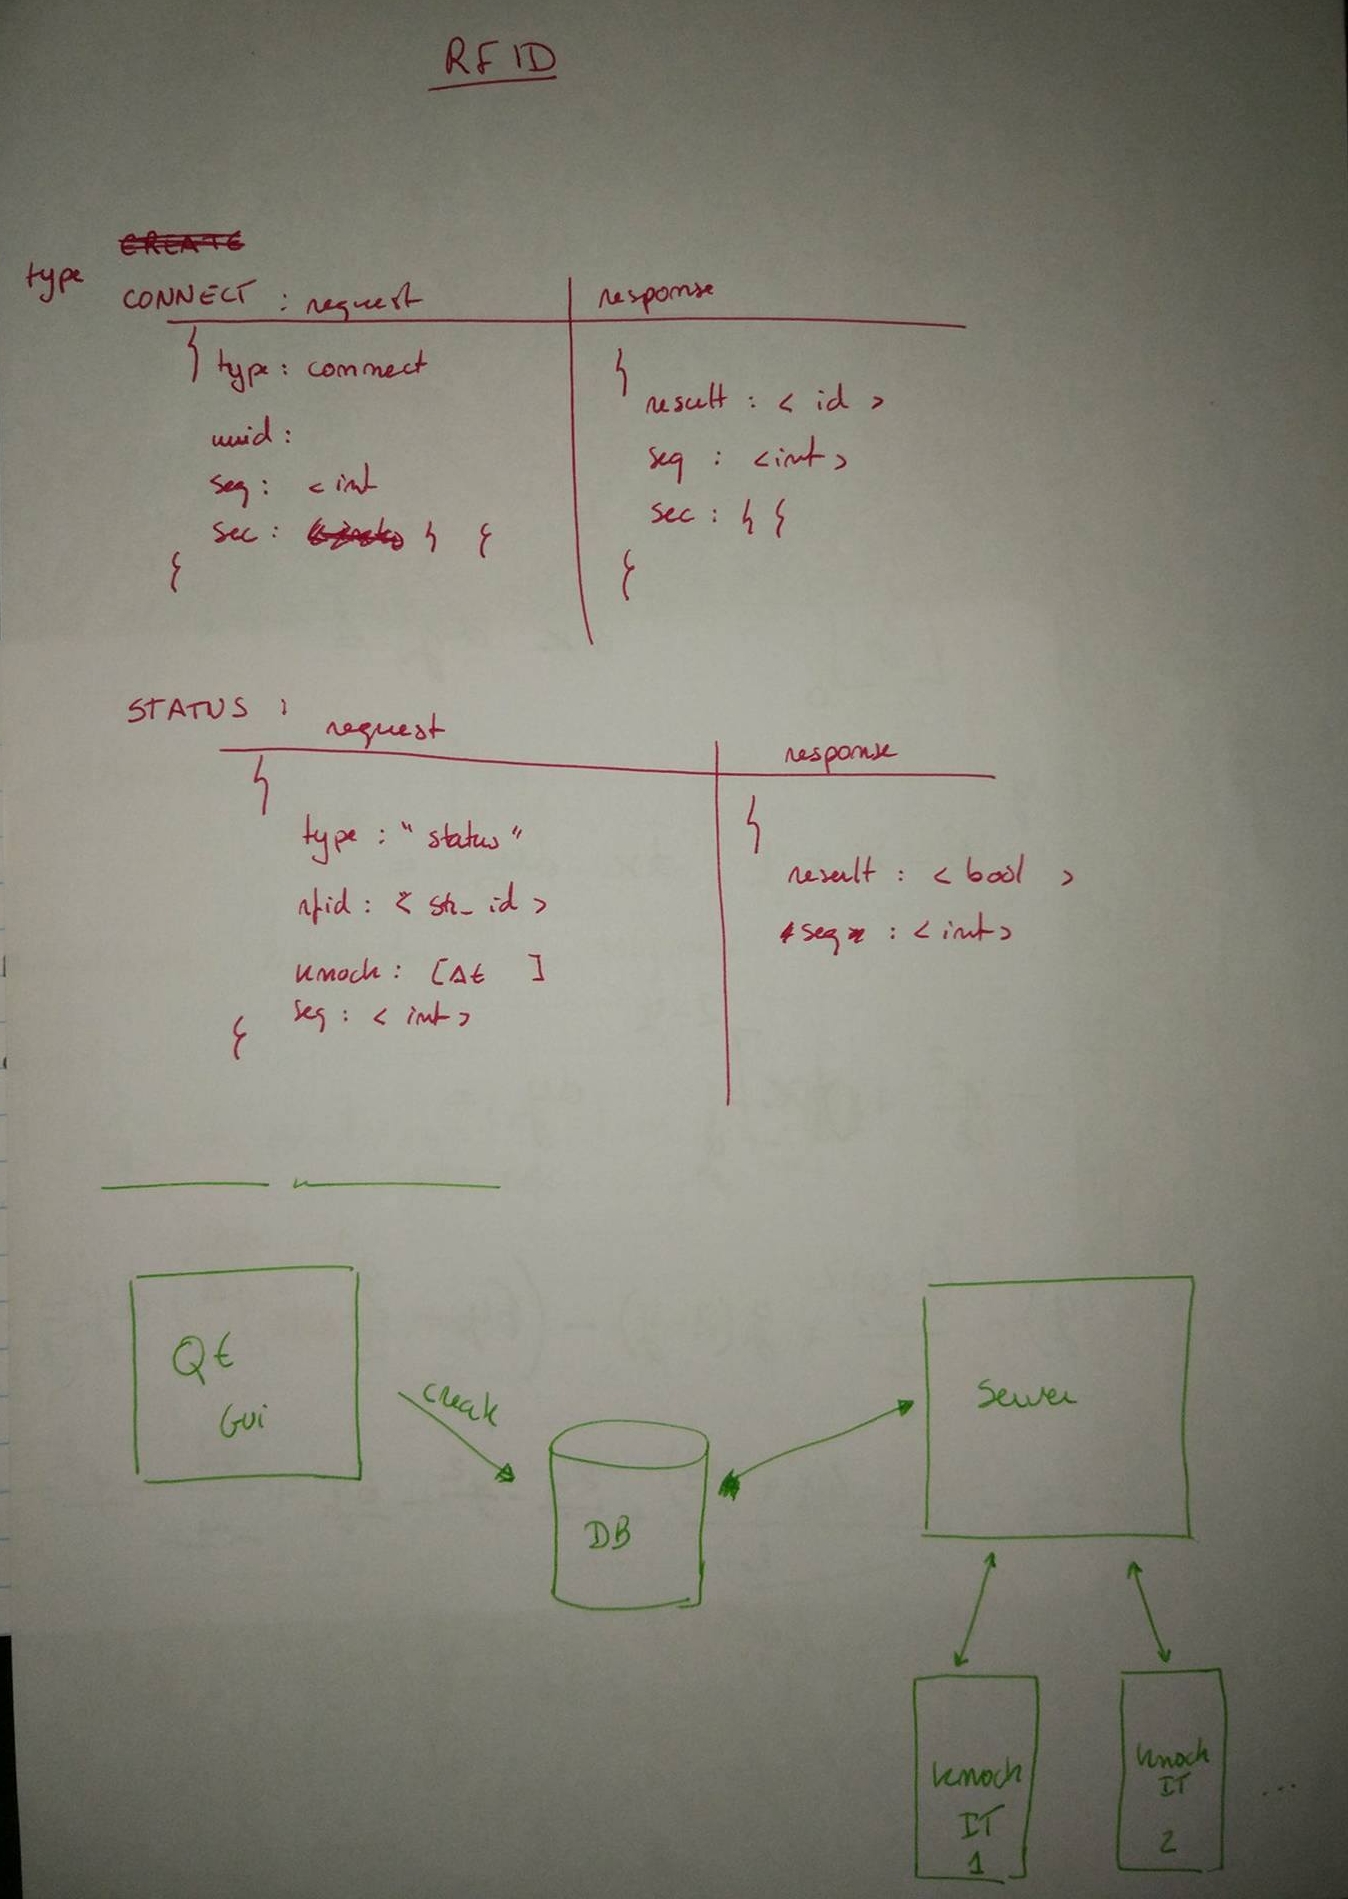 RFID
CREATE
type
CONNECT : request
response
{ type : connect
uuid :
seq : < int
sec : { }
}
{
result : < id >
seq : < int >
sec : { }
}
STATUS :
request
response
{
type : " status "
rfid : < str_id >
knock : [ Δt ]
seq : < int >
}
{
result : < bool >
seq : < int >
Qt
GUI
create
DB
Server
knock
IT
1
knock
IT
2
...